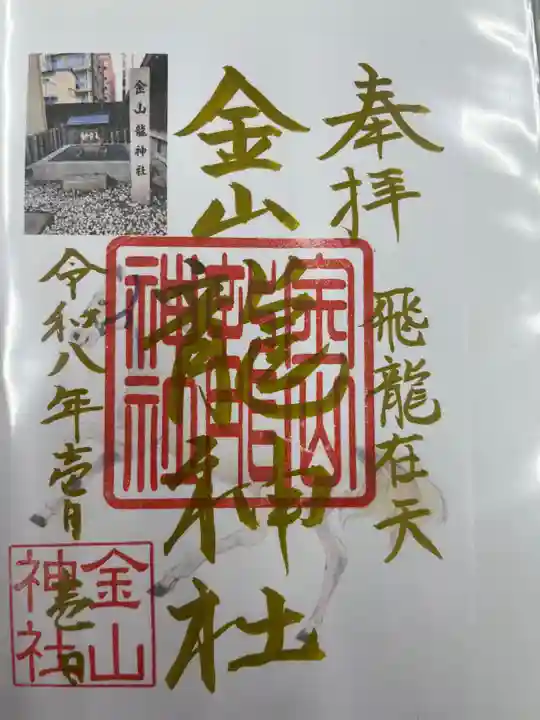 奉拝
飛龍在天
金山龍神社
金山龍神社
令和八年壱月
壱日
金山
神社
金山龍神社